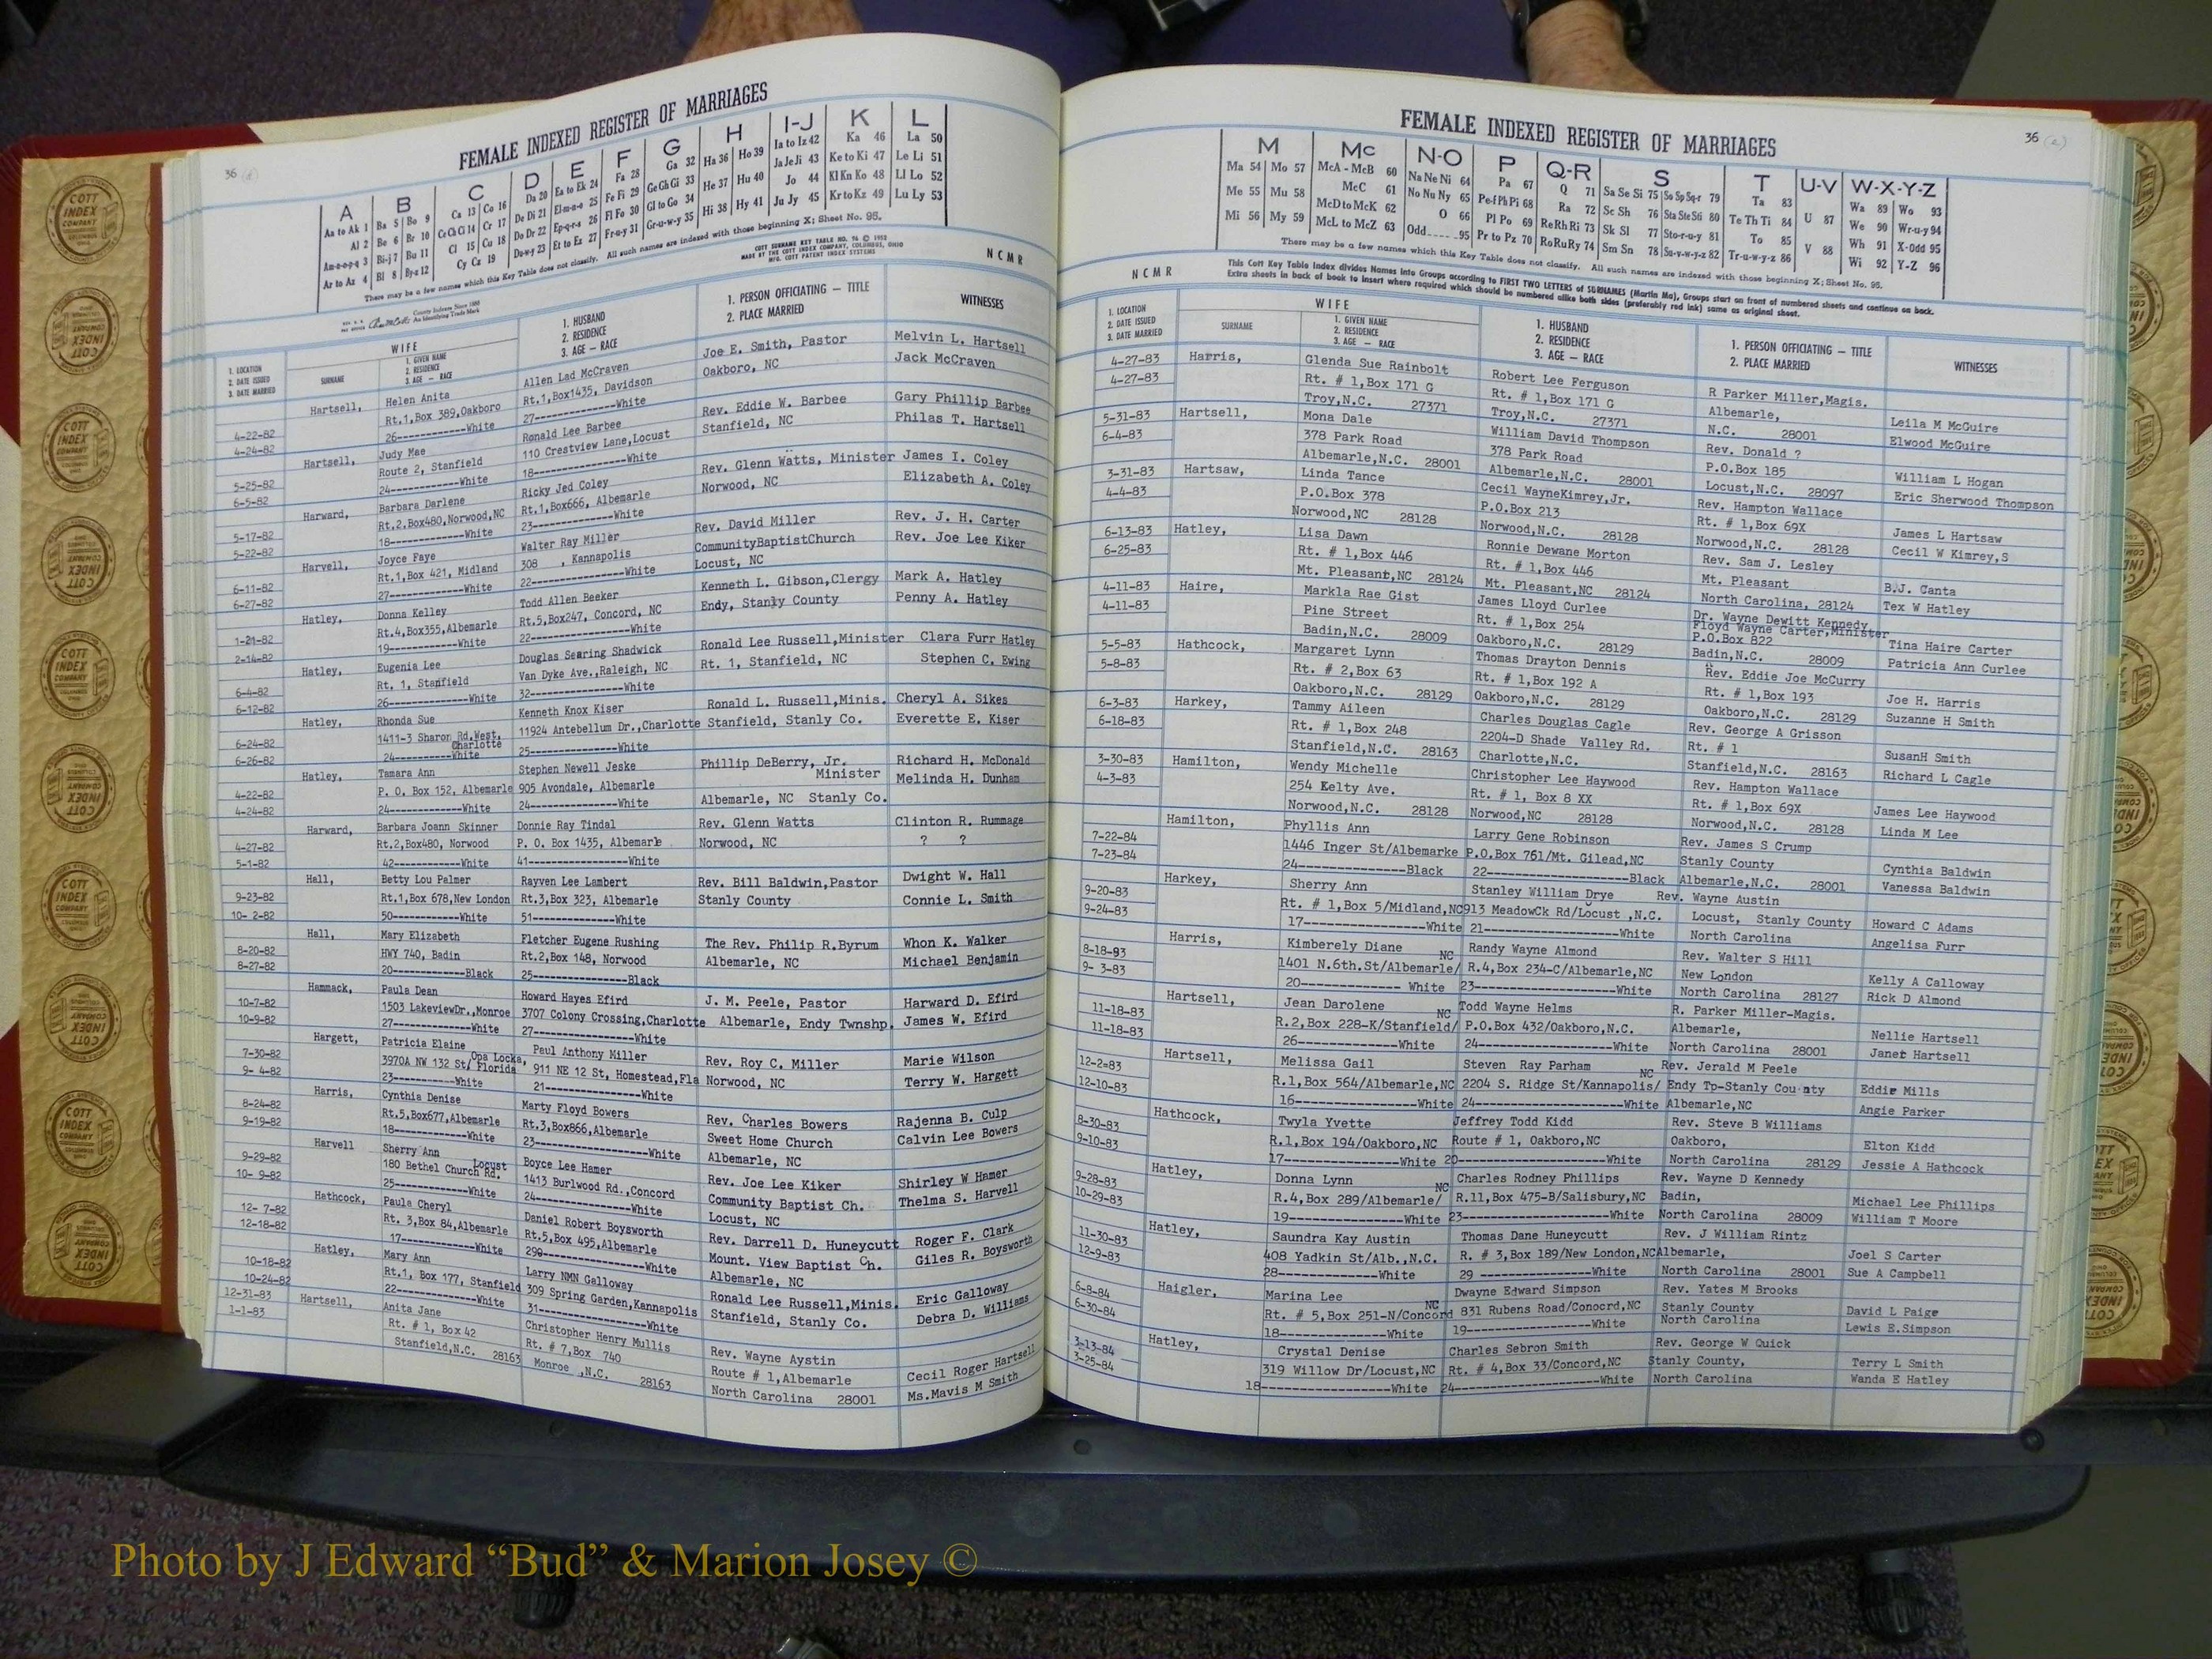 36
FEMALE INDEXED REGISTER OF MARRIAGES
A B C D E F G H I-J K L
Aa to Ak 1 Ba 5 Bo 9 Ca 13 Co 16 Da 20 Ea to Ek 24 Fa 28 Ga 32 Ha 36 Ho 39 Ia to Iz 42 Ka 46 La 50
Al 2 Be 6 Br 10 Ce Ch Ci 14 Cr 17 De Di 21 El-m-n-o 25 Fe Fi 29 Ge Gh Gi 33 He 37 Hu 40 Ja Je Ji 43 Ke to Ki 47 Le Li 51
Am-n-o-p-q 3 Bi-j 7 Bu 11 Cl 15 Cu 18 Do Dr 22 Ep-q-r-s 26 Fl Fo 30 Gl to Go 34 Hi 38 Hy 41 Jo 44 Kl Kn Ko 48 Ll Lo 52
Ar to Az 4 Bl 8 By-z 12 Cy Cz 19 Du-w-y 23 Et to Ez 27 Fr-u-y 31 Gr-u-w-y 35 Ju Jy 45 Kr to Kz 49 Lu Ly 53
There may be a few names which this Key Table does not classify. All such names are indexed with those beginning X; Sheet No. 95.
COTT SURNAME KEY TABLE NO. 96 © 1952
MADE BY THE COTT INDEX COMPANY, COLUMBUS, OHIO
MFG. COTT PATENT INDEX SYSTEMS
NCMR
County Indexes Since 1888
An Identifying Trade Mark
1. LOCATION
2. DATE ISSUED
3. DATE MARRIED
WIFE
SURNAME
1. GIVEN NAME
2. RESIDENCE
3. AGE — RACE
1. HUSBAND
2. RESIDENCE
3. AGE — RACE
1. PERSON OFFICIATING — TITLE
2. PLACE MARRIED
WITNESSES
Hartsell, Helen Anita Allen Lad McCraven Joe E. Smith, Pastor Melvin L. Hartsell
4-22-82 Rt.1,Box 389,Oakboro Rt.1,Box1435, Davidson Oakboro, NC Jack McCraven
4-24-82 26------------White 27--------------White
Hartsell, Judy Mae Ronald Lee Barbee Rev. Eddie W. Barbee Gary Phillip Barbee
5-25-82 Route 2, Stanfield 110 Crestview Lane,Locust Stanfield, NC Philas T. Hartsell
6-5-82 24------------White 18---------------White
Harward, Barbara Darlene Ricky Jed Coley Rev. Glenn Watts, Minister James I. Coley
5-17-82 Rt.2,Box480,Norwood,NC Rt.1,Box666, Albemarle Norwood, NC Elizabeth A. Coley
5-22-82 18------------White 23--------------White
Harvell, Joyce Faye Walter Ray Miller Rev. David Miller Rev. J. H. Carter
6-11-82 Rt.1,Box 421, Midland 308 , Kannapolis CommunityBaptistChurch Rev. Joe Lee Kiker
6-27-82 27------------White 22---------------White Locust, NC
Hatley, Donna Kelley Todd Allen Beeker Kenneth L. Gibson,Clergy Mark A. Hatley
1-21-82 Rt.4,Box355,Albemarle Rt.5,Box247, Concord, NC Endy, Stanly County Penny A. Hatley
2-14-82 19------------White 22----------------White
Hatley, Eugenia Lee Douglas Searing Shadwick Ronald Lee Russell,Minister Clara Furr Hatley
6-4-82 Rt. 1, Stanfield Van Dyke Ave.,Raleigh, NC Rt. 1, Stanfield, NC Stephen C. Ewing
6-12-82 26------------White 32---------------White
Hatley, Rhonda Sue Kenneth Knox Kiser Ronald L. Russell,Minis. Cheryl A. Sikes
6-24-82 1411-3 Sharon Rd.West, Charlotte 11924 Antebellum Dr.,Charlotte Stanfield, Stanly Co. Everette E. Kiser
6-26-82 24------------White 25---------------White
Hatley, Tamara Ann Stephen Newell Jeske Phillip DeBerry, Jr. Minister Richard H. McDonald
4-22-82 P. O. Box 152, Albemarle 905 Avondale, Albemarle Melinda H. Dunham
4-24-82 24------------White 24---------------White Albemarle, NC Stanly Co.
Harward, Barbara Joann Skinner Donnie Ray Tindal Rev. Glenn Watts Clinton R. Rummage
4-27-82 Rt.2,Box480, Norwood P. O. Box 1435, Albemarle Norwood, NC ? ?
5-1-82 42------------White 41----------------White
Hall, Betty Lou Palmer Rayven Lee Lambert Rev. Bill Baldwin,Pastor Dwight W. Hall
9-23-82 Rt.1,Box 678,New London Rt.3,Box 323, Albemarle Stanly County Connie L. Smith
10- 2-82 50------------White 51---------------White
Hall, Mary Elizabeth Fletcher Eugene Rushing The Rev. Philip R.Byrum Whon K. Walker
8-20-82 HWY 740, Badin Rt.2,Box 148, Norwood Albemarle, NC Michael Benjamin
8-27-82 20------------Black 25---------------Black
Hammack, Paula Dean Howard Hayes Efird J. M. Peele, Pastor Harward D. Efird
10-7-82 1503 LakeviewDr.,Monroe 3707 Colony Crossing,Charlotte Albemarle, Endy Twnshp. James W. Efird
10-9-82 27------------White 27----------------White
Hargett, Patricia Elaine Paul Anthony Miller Rev. Roy C. Miller Marie Wilson
7-30-82 3970A NW 132 St, Opa Locka, Florida 911 NE 12 St, Homestead,Fla Norwood, NC Terry W. Hargett
9- 4-82 23------------White 21----------------White
Harris, Cynthia Denise Marty Floyd Bowers Rev. Charles Bowers Rajenna B. Culp
8-24-82 Rt.5,Box677,Albemarle Rt.3,Box866,Albemarle Sweet Home Church Calvin Lee Bowers
9-19-82 18------------White 23-----------------White Albemarle, NC
Harvell Sherry Ann Boyce Lee Hamer Rev. Joe Lee Kiker Shirley W Hamer
9-29-82 180 Bethel Church Rd. Locust 1413 Burlwood Rd.,Concord Community Baptist Ch. Thelma S. Harvell
10- 9-82 25------------White 24---------------White Locust, NC
Hathcock, Paula Cheryl Daniel Robert Boysworth Rev. Darrell D. Huneycutt Roger F. Clark
12- 7-82 Rt. 3,Box 84,Albemarle Rt.5,Box 495,Albemarle Mount. View Baptist Ch. Giles R. Boysworth
12-18-82 17--------------White 290---------------White Albemarle, NC
Hatley, Mary Ann Larry NMN Galloway Ronald Lee Russell,Minis. Eric Galloway
10-18-82 Rt.1, Box 177, Stanfield 309 Spring Garden,Kannapolis Stanfield, Stanly Co. Debra D. Williams
10-24-82 22--------------White 31---------------White
12-31-83 Hartsell, Anita Jane Christopher Henry Mullis Rev. Wayne Aystin Cecil Roger Hartsell
1-1-83 Rt. # 1, Box 42 Rt. # 7,Box 740 Route # 1,Albemarle Ms.Mavis M Smith
Stanfield,N.C. 28163 Monroe ,N.C. 28163 North Carolina 28001
36
FEMALE INDEXED REGISTER OF MARRIAGES
M Mc N-O P Q-R S T U-V W-X-Y-Z
Ma 54 Mo 57 McA - McB 60 Na Ne Ni 64 Pa 67 Q 71 Sa Se Si 75 So Sp Sq-r 79 Ta 83 Wa 89 Wo 93
Me 55 Mu 58 McC 61 No Nu Ny 65 Pe-f Ph Pi 68 Ra 72 Sc Sh 76 Sta Ste Sti 80 Te Th Ti 84 U 87 We 90 Wr-u-y 94
Mi 56 My 59 McD to McK 62 O 66 Pl Po 69 Re Rh Ri 73 Sk Sl 77 Sto-r-u-y 81 To 85 Wh 91 X-Odd 95
McL to McZ 63 Odd 95 Pr to Pz 70 Ro Ru Ry 74 Sm Sn 78 Su-v-w-y-z 82 Tr-u-w-y-z 86 V 88 Wi 92 Y-Z 96
There may be a few names which this Key Table does not classify. All such names are indexed with those beginning X; Sheet No. 95.
NCMR
This Cott Key Table Index divides Names into Groups according to FIRST TWO LETTERS of SURNAMES (Martin Ma). Groups start on front of numbered sheets and continue on back.
Extra sheets in back of book to insert where required which should be numbered alike both sides (preferably red ink) same as original sheet.
1. LOCATION
2. DATE ISSUED
3. DATE MARRIED
WIFE
SURNAME
1. GIVEN NAME
2. RESIDENCE
3. AGE — RACE
1. HUSBAND
2. RESIDENCE
3. AGE — RACE
1. PERSON OFFICIATING — TITLE
2. PLACE MARRIED
WITNESSES
4-27-83 Harris, Glenda Sue Rainbolt Robert Lee Ferguson R Parker Miller,Magis. Leila M McGuire
4-27-83 Rt. # 1,Box 171 G Rt. # 1,Box 171 G Albemarle, Elwood McGuire
Troy,N.C. 27371 Troy,N.C. 27371 N.C. 28001
5-31-83 Hartsell, Mona Dale William David Thompson Rev. Donald ? William L Hogan
6-4-83 378 Park Road 378 Park Road P.O.Box 185 Eric Sherwood Thompson
Albemarle,N.C. 28001 Albemarle,N.C. 28001 Locust,N.C. 28097
3-31-83 Hartsaw, Linda Tance Cecil WayneKimrey,Jr. Rev. Hampton Wallace James L Hartsaw
4-4-83 P.O.Box 378 P.O.Box 213 Rt. # 1,Box 69X Cecil W Kimrey,S
Norwood,NC 28128 Norwood,N.C. 28128 Norwood,N.C. 28128
6-13-83 Hatley, Lisa Dawn Ronnie Dewane Morton Rev. Sam J. Lesley B.J. Canta
6-25-83 Rt. # 1,Box 446 Rt. # 1,Box 446 Mt. Pleasant Tex W Hatley
Mt. Pleasant,NC 28124 Mt. Pleasant,NC 28124 North Carolina, 28124
4-11-83 Haire, Markla Rae Gist James Lloyd Curlee Dr. Wayne Dewitt Kennedy Tina Haire Carter
4-11-83 Pine Street Rt. # 1,Box 254 Floyd Wayne Carter,Minister P.O.Box 822 Patricia Ann Curlee
Badin,N.C. 28009 Oakboro,N.C. 28129 Badin,N.C. 28009
5-5-83 Hathcock, Margaret Lynn Thomas Drayton Dennis Rev. Eddie Joe McCurry Joe H. Harris
5-8-83 Rt. # 2,Box 63 Rt. # 1,Box 192 A Rt. # 1,Box 193 Suzanne H Smith
Oakboro,N.C. 28129 Oakboro,N.C. 28129 Oakboro,N.C. 28129
6-3-83 Harkey, Tammy Aileen Charles Douglas Cagle Rev. George A Grisson SusanH Smith
6-18-83 Rt. # 1,Box 248 2204-D Shade Valley Rd. Rt. # 1 Richard L Cagle
Stanfield,N.C. 28163 Charlotte,N.C. Stanfield,N.C. 28163
3-30-83 Hamilton, Wendy Michelle Christopher Lee Haywood Rev. Hampton Wallace James Lee Haywood
4-3-83 254 Kelty Ave. Rt. # 1, Box 8 XX Rt. # 1,Box 69X Linda M Lee
Norwood,N.C. 28128 Norwood,NC 28128 Norwood,N.C. 28128
7-22-84 Hamilton, Phyllis Ann Larry Gene Robinson Rev. James S Crump Cynthia Baldwin
7-23-84 1446 Inger St/Albemarke P.O.Box 761/Mt. Gilead,NC Stanly County Vanessa Baldwin
24--------------Black 22-----------------Black Albemarle,N.C. 28001
9-20-83 Harkey, Sherry Ann Stanley William Drye Rev. Wayne Austin Howard C Adams
9-24-83 Rt. # 1,Box 5/Midland,NC 913 MeadowCk Rd/Locust ,N.C. Locust, Stanly County Angelisa Furr
17----------------White 21------------------White North Carolina
8-18-83 Harris, Kimberely Diane Randy Wayne Almond Rev. Walter S Hill Kelly A Calloway
9- 3-83 1401 N.6th.St/Albemarle/ NC R.4,Box 234-C/Albemarle,NC New London Rick D Almond
20------------- White 23-----------------White North Carolina 28127
11-18-83 Hartsell, Jean Darolene Todd Wayne Helms R. Parker Miller-Magis. Nellie Hartsell
11-18-83 R.2,Box 228-K/Stanfield/ NC P.O.Box 432/Oakboro,N.C. Albemarle, Janet Hartsell
26--------------White 24------------------White North Carolina 28001
12-2-83 Hartsell, Melissa Gail Steven Ray Parham Rev. Jerald M Peele Eddie Mills
12-10-83 R.1,Box 564/Albemarle,NC 2204 S. Ridge St/Kannapolis/ NC Endy Tp-Stanly County Angie Parker
16-----------------White 24-----------------White Albemarle,NC
8-30-83 Hathcock, Twyla Yvette Jeffrey Todd Kidd Rev. Steve B Williams Elton Kidd
9-10-83 R.1,Box 194/Oakboro,NC Route # 1, Oakboro,NC Oakboro, Jessie A Hathcock
17----------------White 20-----------------White North Carolina 28129
9-28-83 Hatley, Donna Lynn Charles Rodney Phillips Rev. Wayne D Kennedy Michael Lee Phillips
10-29-83 R.4,Box 289/Albemarle/ NC R.11,Box 475-B/Salisbury,NC Badin, William T Moore
19----------------White 23-----------------White North Carolina 28009
11-30-83 Hatley, Saundra Kay Austin Thomas Dane Huneycutt Rev. J William Rintz Joel S Carter
12-9-83 408 Yadkin St/Alb.,N.C. R. # 3,Box 189/New London,NC Albemarle, Sue A Campbell
28--------------White 29 ----------------White North Carolina 28001
6-8-84 Haigler, Marina Lee Dwayne Edward Simpson Rev. Yates M Brooks David L Paige
6-30-84 Rt. # 5,Box 251-N/Concord NC 831 Rubens Road/Conocrd,NC Stanly County Lewis E.Simpson
18--------------White 19-----------------White North Carolina
3-13-84 Hatley, Crystal Denise Charles Sebron Smith Rev. George W Quick Terry L Smith
3-25-84 319 Willow Dr/Locust,NC Rt. # 4,Box 33/Concord,NC Stanly County, Wanda E Hatley
18----------------White 24-------------------White North Carolina
Photo by J Edward “Bud” & Marion Josey ©